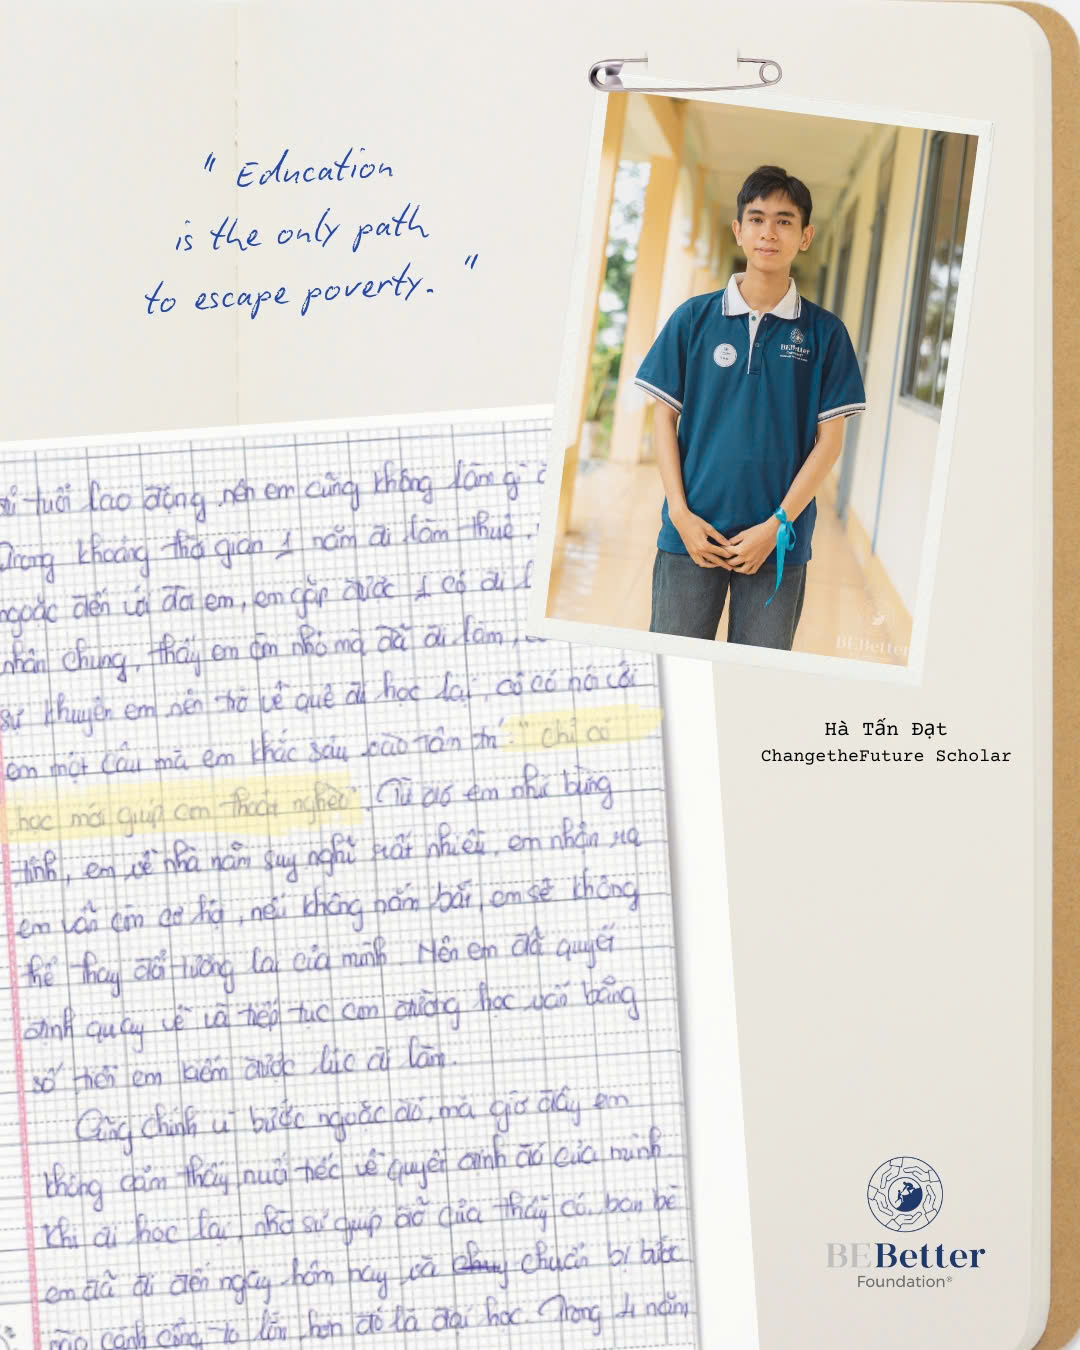 " Education
is the only path
to escape poverty. "
BEBetter
BEBetter
Hà Tấn Đạt
ChangetheFuture Scholar
tuổi lao động nên em cũng không làm gì
Trong khoảng thời gian 1 năm đi làm thuê,
ngoặc đến với đời em, em gặp được 1 cô đi
nhân chung, thấy em còn nhỏ mà đã đi làm,
sự khuyên em nên trở về quê đi học lại, cô có nói với
em một câu mà em khắc sâu vào tâm trí: " chỉ có
học mới giúp con thoát nghèo". Từ đó em như bừng
tỉnh, em về nhà nằm suy nghĩ rất nhiều, em nhận ra
em vẫn còn cơ hội, nếu không nắm bắt, em sẽ không
thể thay đổi tương lai của mình. Nên em đã quyết
định quay về và tiếp tục con đường học vấn bằng
số tiền em kiếm được lúc đi làm.
Cũng chính vì bước ngoặc đó, mà giờ đây em
không cảm thấy nuối tiếc về quyết định đó của mình
khi đi học lại, nhờ sự giúp đỡ của thầy cô, bạn bè
em đã đi đến ngày hôm nay và chuẩn bị bước
vào cánh cổng to lớn hơn đó là đại học. Trong 4 năm
BEBetter
Foundation®